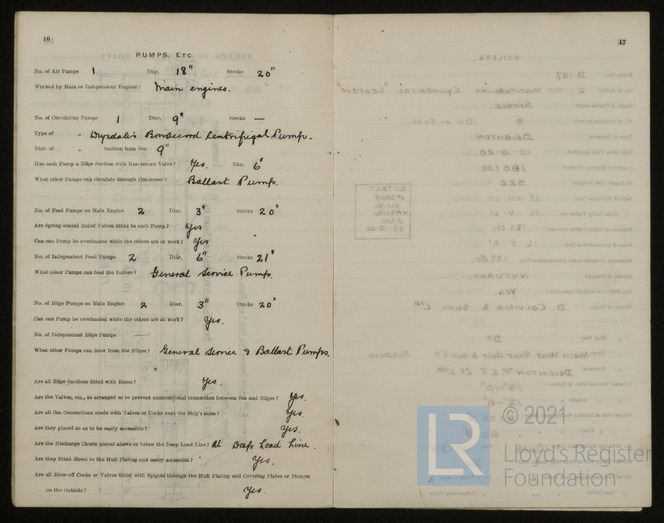 16
PUMPS, ETC
No. of Air Pumps 1 Diar. 18" Stroke 20"
Worked by Main or Independent Engines? Main engines.
No. of Circulating Pumps 1 Diar. 9" Stroke —
Type of " Bonaccord Centrifugal Pump.
Diar. of " Suction from Sea 9"
Has each Pump a Bilge Suction with Non-return Valve? Yes. Diar. 6"
What other Pumps can circulate through Condenser? Ballast Pump.
No. of Feed Pumps on Main Engine 2 Diar. 3" Stroke 20"
Are Spring-loaded Relief Valves fitted to each Pump? Yes
Can one Pump be overhauled while the others are at work? Yes
No. of Independent Feed Pumps 2 Diar. 6" Stroke 21"
What other Pumps can feed the Boilers? General Service Pump.
No. of Bilge Pumps on Main Engine 2 Diar. 3" Stroke 20"
Can one Pump be overhauled while the others are at work? Yes.
No. of Independent Bilge Pumps —
What other Pumps can draw from the Bilges? General Service & Ballast Pumps.
Are all Bilge Suctions fitted with Roses? Yes.
Are the Valves, etc., so arranged as to prevent unintentional connection between Sea and Bilges? Yes.
Are all Sea Connections made with Valves or Cocks next the Ship's sides? Yes.
Are they placed so as to be easily accessible? Yes.
Are the Discharge Chests placed above or below the Deep Load Line? At Deep Load Line.
Are they fitted direct to the Hull Plating and easily accessible? Yes.
Are all Blow-off Cocks or Valves fitted with Spigots through the Hull Plating and Covering Plates or Flanges
on the Outside? Yes.
17
LR
© 2021
Lloyd's Register
Foundation